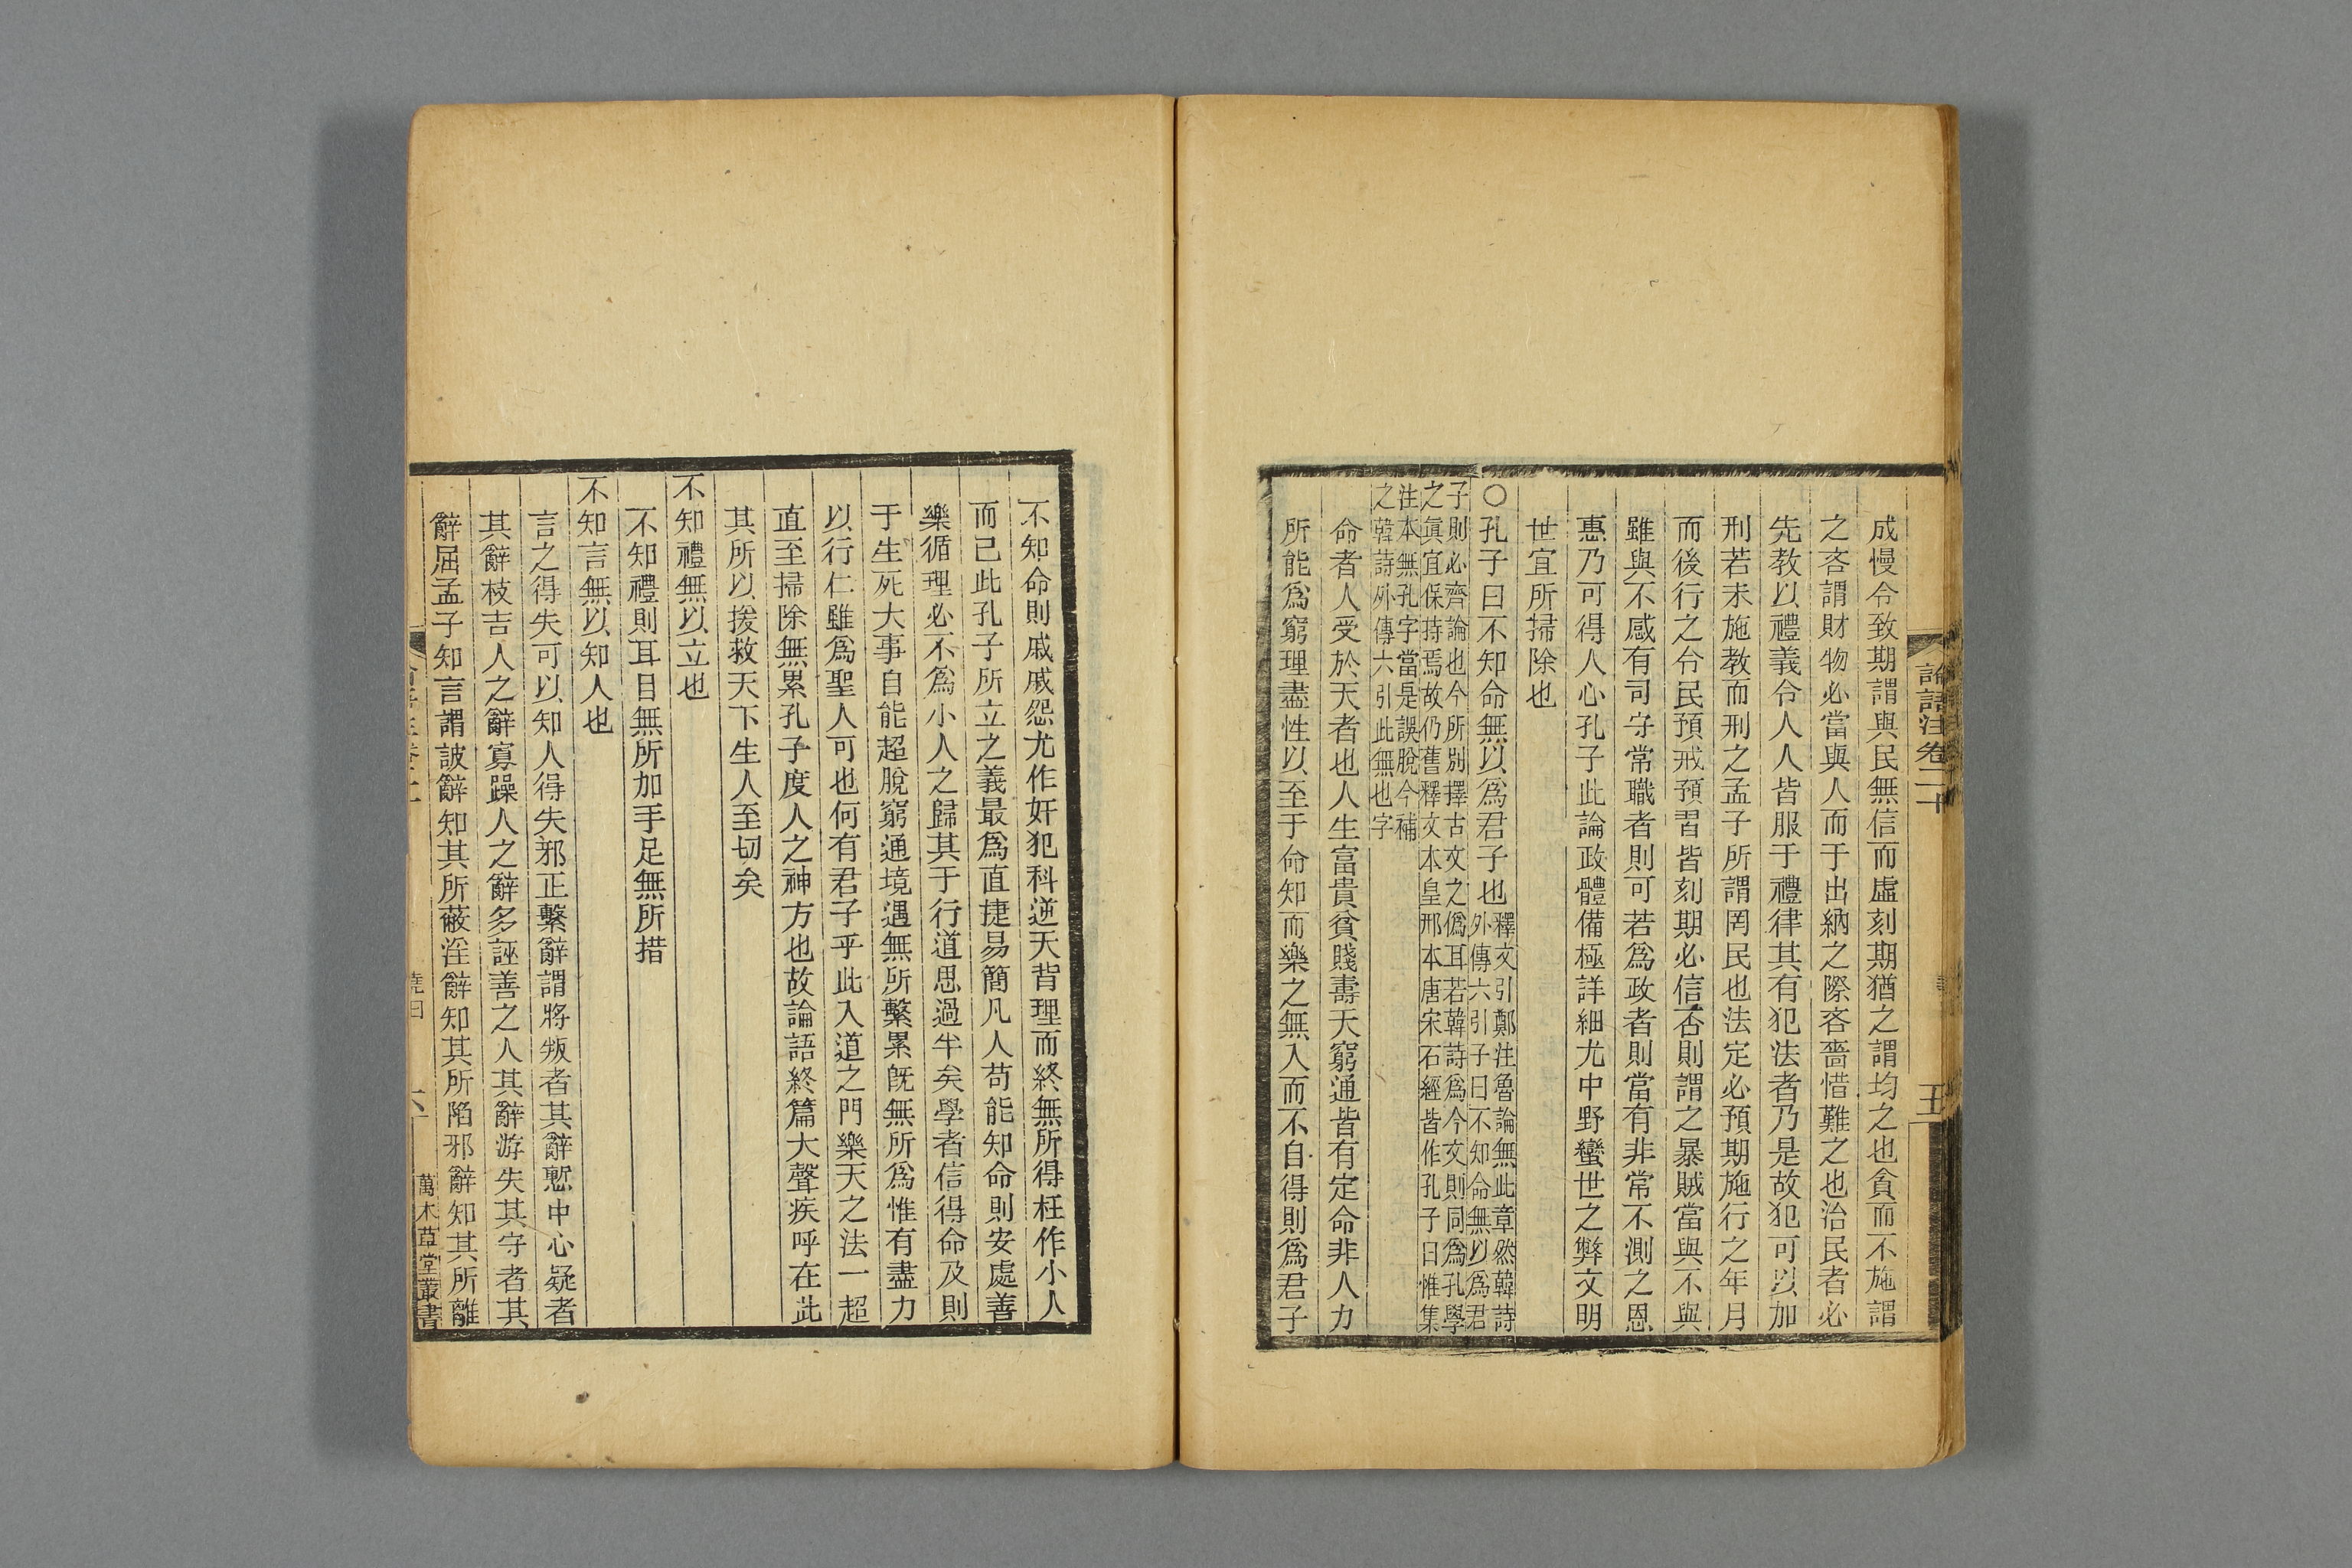 論語注卷二十
五
成慢令致期謂與民無信而虛刻期猶之謂均之也貪而不施謂
之吝謂財物必當與人而于出納之際吝嗇惜難之也治民者必
先教以禮義令人人皆服于禮律其有犯法者乃是故犯可以加
刑若未施教而刑之孟子所謂罔民也法定必預期施行之年月
而後行之令民預戒預習皆刻期必信否則謂之暴賊當與不與
雖與不感有司守常職者則可若爲政者則當有非常不測之恩
惠乃可得人心孔子此論政體備極詳細尤中野蠻世之弊文明
世宜所掃除也
○孔子曰不知命無以爲君子也
釋文引鄭注魯論無此章然韓詩
外傳六引子曰不知命無以爲君
子則必齊論也今所別擇古文之僞耳若韓詩爲今文則同爲孔學
之眞宜保持焉故仍舊釋文本皇邢本唐宋石經皆作孔子曰惟集
注本無孔字當是誤脫今補
之韓詩外傳六引此無也字
命者人受於天者也人生富貴貧賤壽夭窮通皆有定命非人力
所能爲窮理盡性以至于命知而樂之無入而不自得則爲君子
不知命則戚戚怨尤作奸犯科逆天背理而終無所得枉作小人
而已此孔子所立之義最爲直捷易簡凡人苟能知命則安處善
樂循理必不爲小人之歸其于行道思過半矣學者信得命及則
于生死大事自能超脫窮通境遇無所繫累旣無所爲惟有盡力
以行仁雖爲聖人可也何有君子乎此入道之門樂天之法一超
直至掃除無累孔子度人之神方也故論語終篇大聲疾呼在此
其所以援救天下生人至切矣
不知禮無以立也
不知禮則耳目無所加手足無所措
不知言無以知人也
言之得失可以知人得失邪正繫辭謂將叛者其辭慙中心疑者
其辭枝吉人之辭寡躁人之辭多誣善之人其辭游失其守者其
辭屈孟子知言謂詖辭知其所蔽淫辭知其所陷邪辭知其所離
堯曰
六
萬木草堂叢書